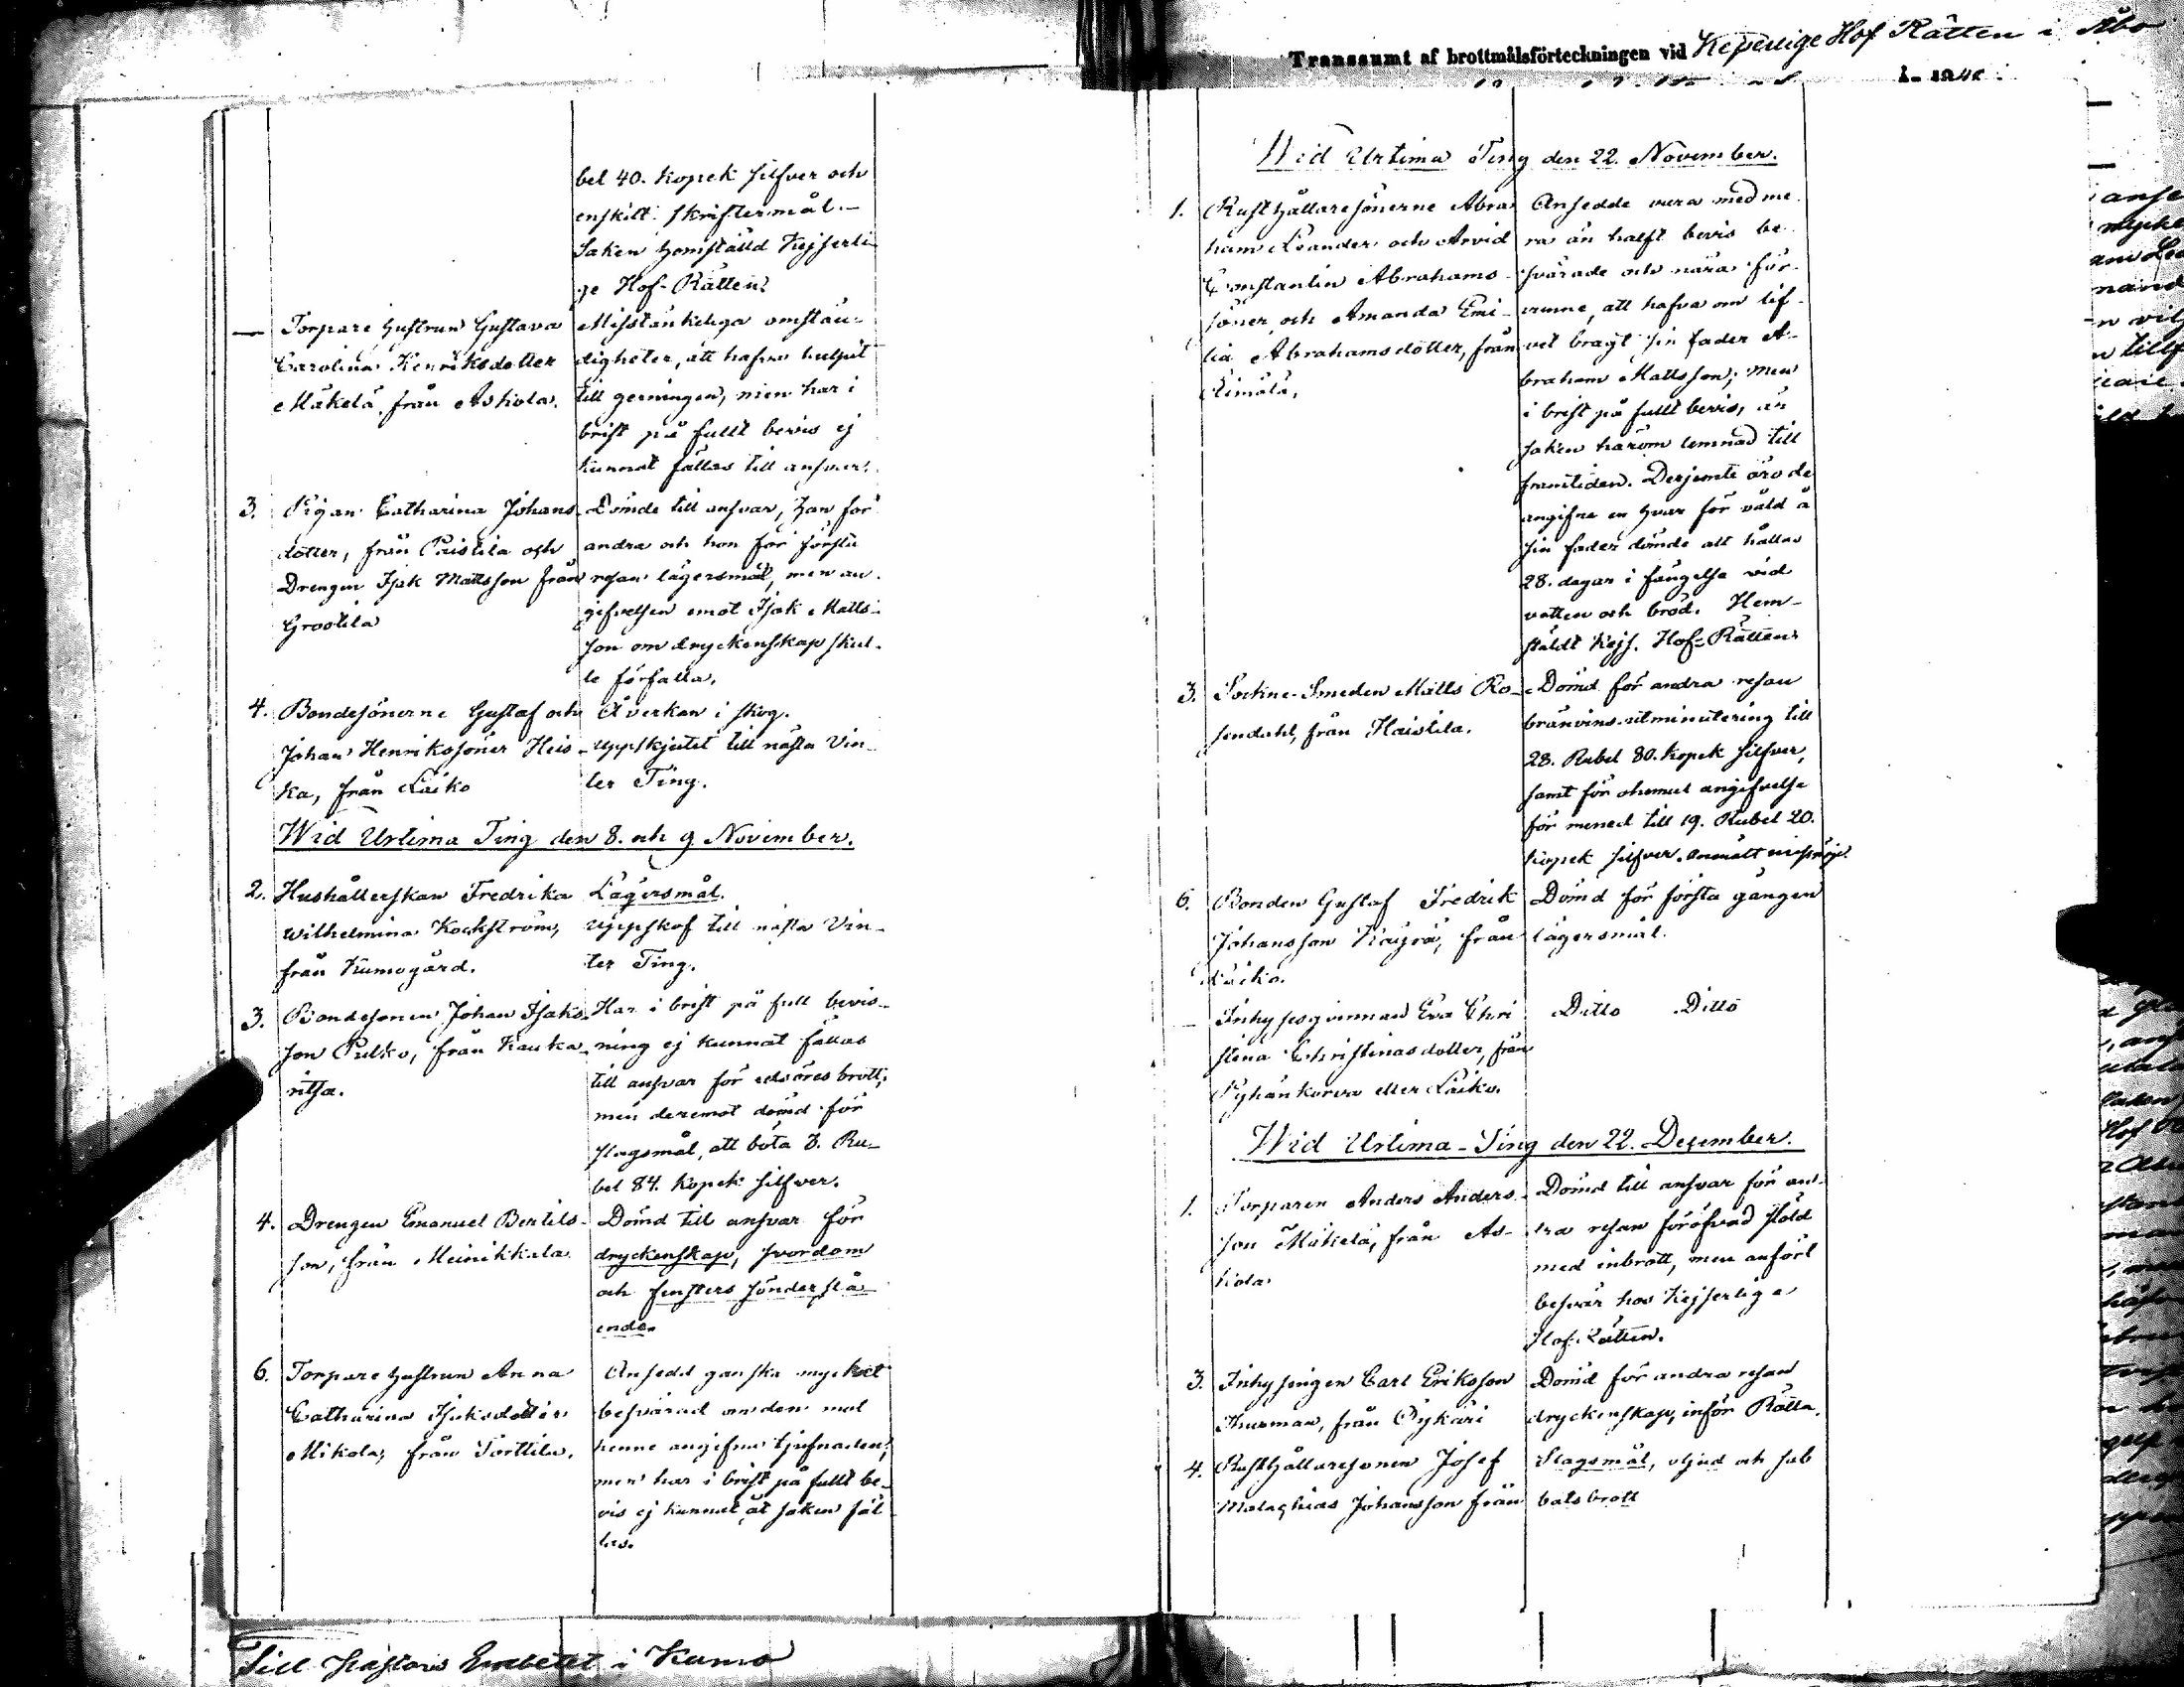 bel 40. kopek silfver och
enskilt skriftermål.
Saken hemställd Kejserli
ge Hof-Rätten.
— Torpare hustrun Gustava
Carolina Henriksdotter
Mäkelä från Askola.
Misstänkeliga omstän-
digheter, att hafva hulpit
till gerningen, men har i
brist på fullt bevis ej
kunnat fällas till ansvar.
3. Pigan Catharina Johans
dotter, från Paistila och
Drengen Isak Mattsson från
Grootila
Dömde till ansvar, han för
andra och hon för första
resan lägersmål, men an-
gifvelsen emot Isak Matts-
son om dryckenskap skul-
le förfalla.
4. Bondesönerne Gustaf och
Johan Henrikssöner Heis-
ka, från Laiko
Åverkan i skog.
Uppskjutet till nästa Vin-
ter Ting.
Wid Urtima Ting den 8. och 9 November.
2. Hushållerskan Fredrika
Wilhelmina Kockström,
från Kumogård.
Lägersmål.
Uppskof till nästa Vin-
ter Ting.
3. Bondesonen Johan Isaks-
son Pulko, från Kauka-
ritsa.
Har i brist på full bevis-
ning ej kunnat fällas
till ansvar för edsöres brott;
men deremot dömd för
slagsmål, att böta 3. Ru-
bel 84. kopek silfver.
4. Drengen Emanuel Bertils-
son, från Meinikkala
Dömd till ansvar för
dryckenskap, svordom
och fensters sönderslå-
ende.
6. Torpare hustrun Anna
Catharina Isaksdotter
Mikola, från Torttila.
Ansedd ganska mycket
besvärad om den mot
henne angifna tjufnaden;
men har i brist på fullt be-
vis ej kunnat åt saken fäl
las.
Till Pastors Embetet i Kumo
Transsumt af brottmålsförteckningen vid Kejserlige Hof Rätten i Åbo
Wid Urtima Ting den 22. November.
1. Rusthållaresönerne Abra
ham Leander och Arvid
Constantin Abrahams-
söner, och Amanda Emi-
lia Abrahamsdotter, från
Ansedde vara med me
ra än halft bevis be-
svärade och nära för-
vunne, att hafva om lif-
vet bragt sin fader A-
braham Mattsson; men
i brist på fullt bevis, är
saken härom lemnad till
framtiden. Derjemte äro de
angifne en hvar för våld å
sin fader dömde att hållas
28. dagar i fängelse vid
vatten och bröd. Hem-
ställdt Kejs. Hof-Rätten
3. Sockne-Smeden Matts Ro-
sendahl, från Haistila.
Dömd för andra resan
bränvins-utminutering till
28. Rubel 80. kopek silfver,
samt för ohemul angifvelse
för mened till 19. Rubel 20.
kopek silfver. Anmält missnöje.
6. Bonden Gustaf Fredrik
Johansson från
Laiko.
Dömd för första gången
lägersmål.
— Inhyses qvinnan Eva Chri
stina Christinasdotter, från
Pyhänkorva eller Laiko.
Ditto Ditto
Wid Urtima-Ting den 22. December.
1. Torparen Anders Anders-
son Mäkelä, från As-
kola
Dömd till ansvar för an-
dra resan föröfvad stöld
med inbrott, men anfört
besvär hos Kejserlige
Hof-Rätten.
3. Inhysingen Carl Eriksson
Thurman, från Öykäri
Dömd för andra resan
dryckenskap, inför Rätta.
4. Rusthållaresonen Josef
Malachias Johansson från
Slagsmål, oljud och sab
batsbrott